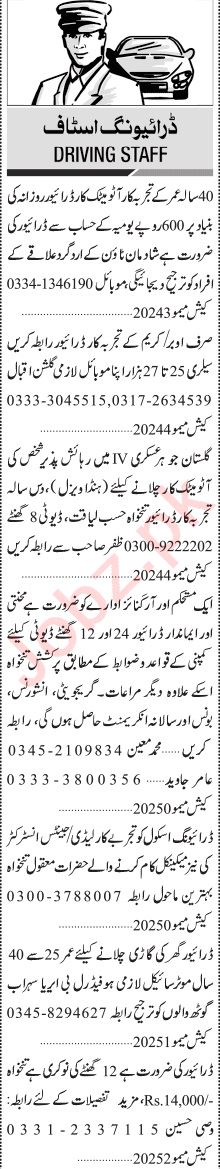 ڈرائیونگ اسٹاف
DRIVING STAFF
40 سالہ عمر کے تجربہ کار آٹومیٹک کار ڈرائیور روزانہ کی
بنیاد پر 600 روپے یومیہ کے حساب سے ڈرائیور کی
ضرورت ہے شادمان ٹاؤن کے اردگرد علاقے کے
افراد کو ترجیح دیجائیگی، موبائل 1346190-0334
کیش میمو 20243
صرف اوبر/کریم کے تجربہ کار ڈرائیور رابطہ کریں
سیلری 25 تا 27 ہزار اپنا موبائل لازمی گلشن اقبال
0333-3045515,0317-2634539
کیش میمو 20244
گلستان جوہر عسکری IV میں رہائش پذیر شخص کی
آٹومیٹک کار چلانے کیلئے (ہنڈا ویزل)، دس سالہ
تجربہ کار ڈرائیور تنخواہ حسب لیاقت، ڈیوٹی 8 گھنٹے
0300-9222202 ظفر صاحب سے رابطہ کریں
کیش میمو 20244
ایک مستحکم اور آرگنائز ادارے کو ضرورت ہے محنتی
اور ایماندار ڈرائیور 24 اور 12 گھنٹے ڈیوٹی کیلئے
کمپنی کے قواعد و ضوابط کے مطابق پرکشش تنخواہ
اسکے علاوہ دیگر مراعات۔ گریجویٹی، انشورنس،
بونس اور سالانہ انکریمنٹ حاصل ہوں گی، رابطہ
کریں..... محمد معین 2109834-0345
عامر جاوید..... 0333-3800356
کیش میمو 20250
ڈرائیونگ اسکول کو تجربے کار لیڈی/جینٹس انسٹرکٹر
کی نیز میکینکل کام کرنے والے حضرات معقول تنخواہ
بہترین ماحول رابطہ 3788007-0300
کیش میمو 20250
ڈرائیور گھر کی گاڑی چلانے کیلئے عمر 25 سے 40
سال موٹر سائیکل لازمی ہو فیڈرل بی ایریا سہراب
گوٹھ والوں کو ترجیح رابطہ 8294627-0345
کیش میمو 20251
ڈرائیور کی ضرورت ہے 12 گھنٹے کی نوکری ہے تنخواہ
Rs.14,000/-، مزید تفصیلات کے لئے رابطہ:
وصی حسین 0331-2337115
کیش میمو 20252
Jobz.pk